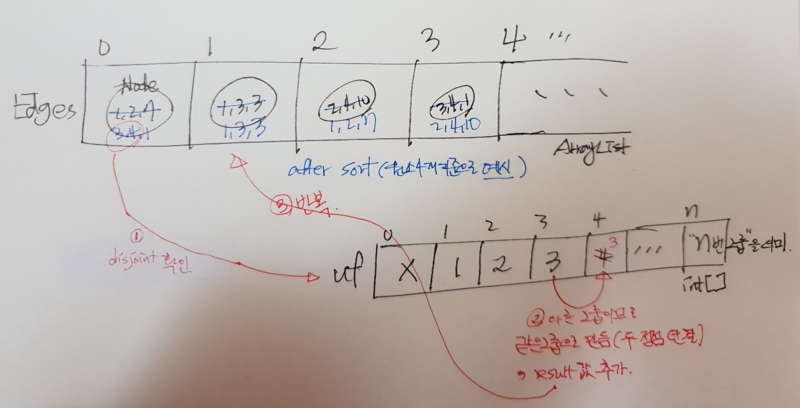 0 1 2 3 4 ...
Edges
Node
1,2,7 1,3,3 2,4,10 3,4,1
3,4,1 1,3,3 1,2,7 2,4,10
after sort (
ArrayList
③ 반복.
①
disjoint 확인
0 1 2 3 4 n
uf X 1 2 3 4 3 ... "n번 그룹"을 의미.
int[]
② 다른 그룹이므로
같은그룹으로 만듦 (두 정점 연결)
, result 값 추가.